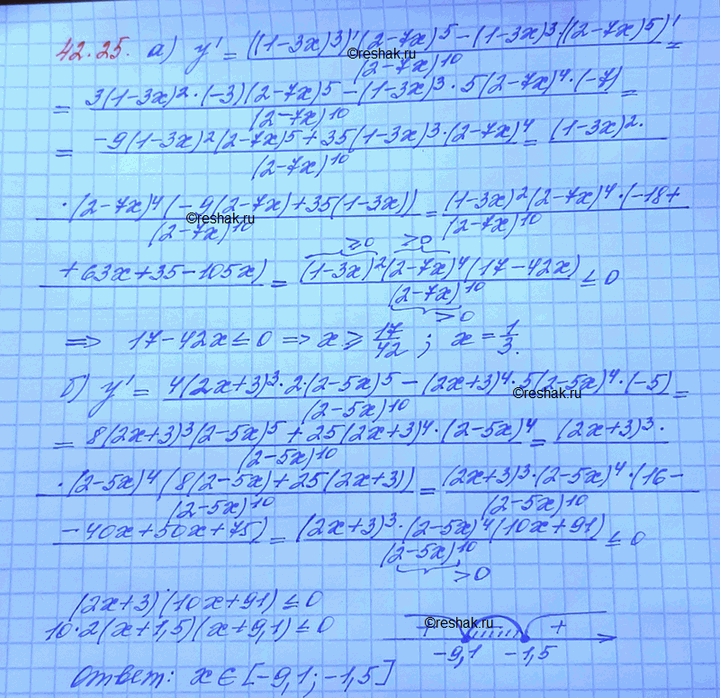 42.25. а) y' = ((1-3x)3)'(2-7x)5 - (1-3x)3·((2-7x)5)' / (2-7x)10 =
= 3(1-3x)2·(-3)(2-7x)5 - (1-3x)3·5(2-7x)4·(-7) / (2-7x)10 =
= -9(1-3x)2(2-7x)5 + 35(1-3x)3·(2-7x)4 / (2-7x)10 = (1-3x)2·
·(2-7x)4(-4(2-7x)+35(1-3x)) / (2-7x)10 = (1-3x)2(2-7x)4·(-18+ / (2-7x)10
+63x+35-105x) = (1-3x)2(2-7x)4(17-42x) / (2-7x)10 ≤ 0
≥0 ≥0
>0
⇒ 17-42x ≤ 0 ⇒ x ≥ 17/42 ; x = 1/3.
б) y' = 4(2x+3)3·2·(2-5x)5 - (2x+3)4·5(2-5x)4·(-5) / (2-5x)10 =
= 8(2x+3)3(2-5x)5 + 25(2x+3)4·(2-5x)4 / (2-5x)10 = (2x+3)3·
·(2-5x)4(8(2-5x)+25(2x+3)) / (2-5x)10 = (2x+3)3·(2-5x)4·(16- / (2-5x)10
-40x+50x+75) = (2x+3)3·(2-5x)4(10x+91) / (2-5x)10 ≤ 0
>0
(2x+3)(10x+91) ≤ 0
10·2(x+1,5)(x+9,1) ≤ 0
+ - +
-9,1 -1,5
Ответ: x ∈ [-9,1; -1,5]
©reshak.ru
©reshak.ru
©reshak.ru
©reshak.ru